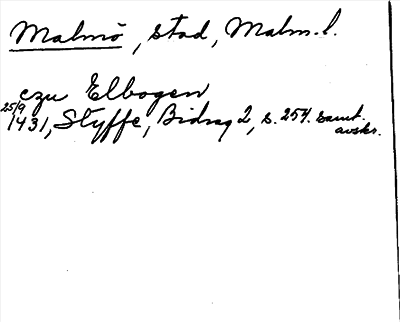 Malmö, stad, Malm. l.
czu Elbogen
25/9 1431, Styffe, Bidrag 2, s. 254. samt. avskr.